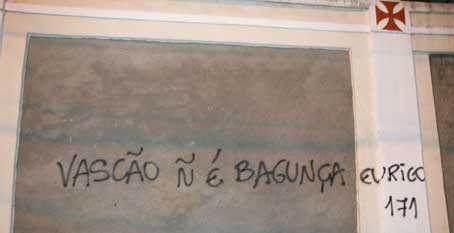 VASCÃO Ñ É BAGUNÇA EURICO
171